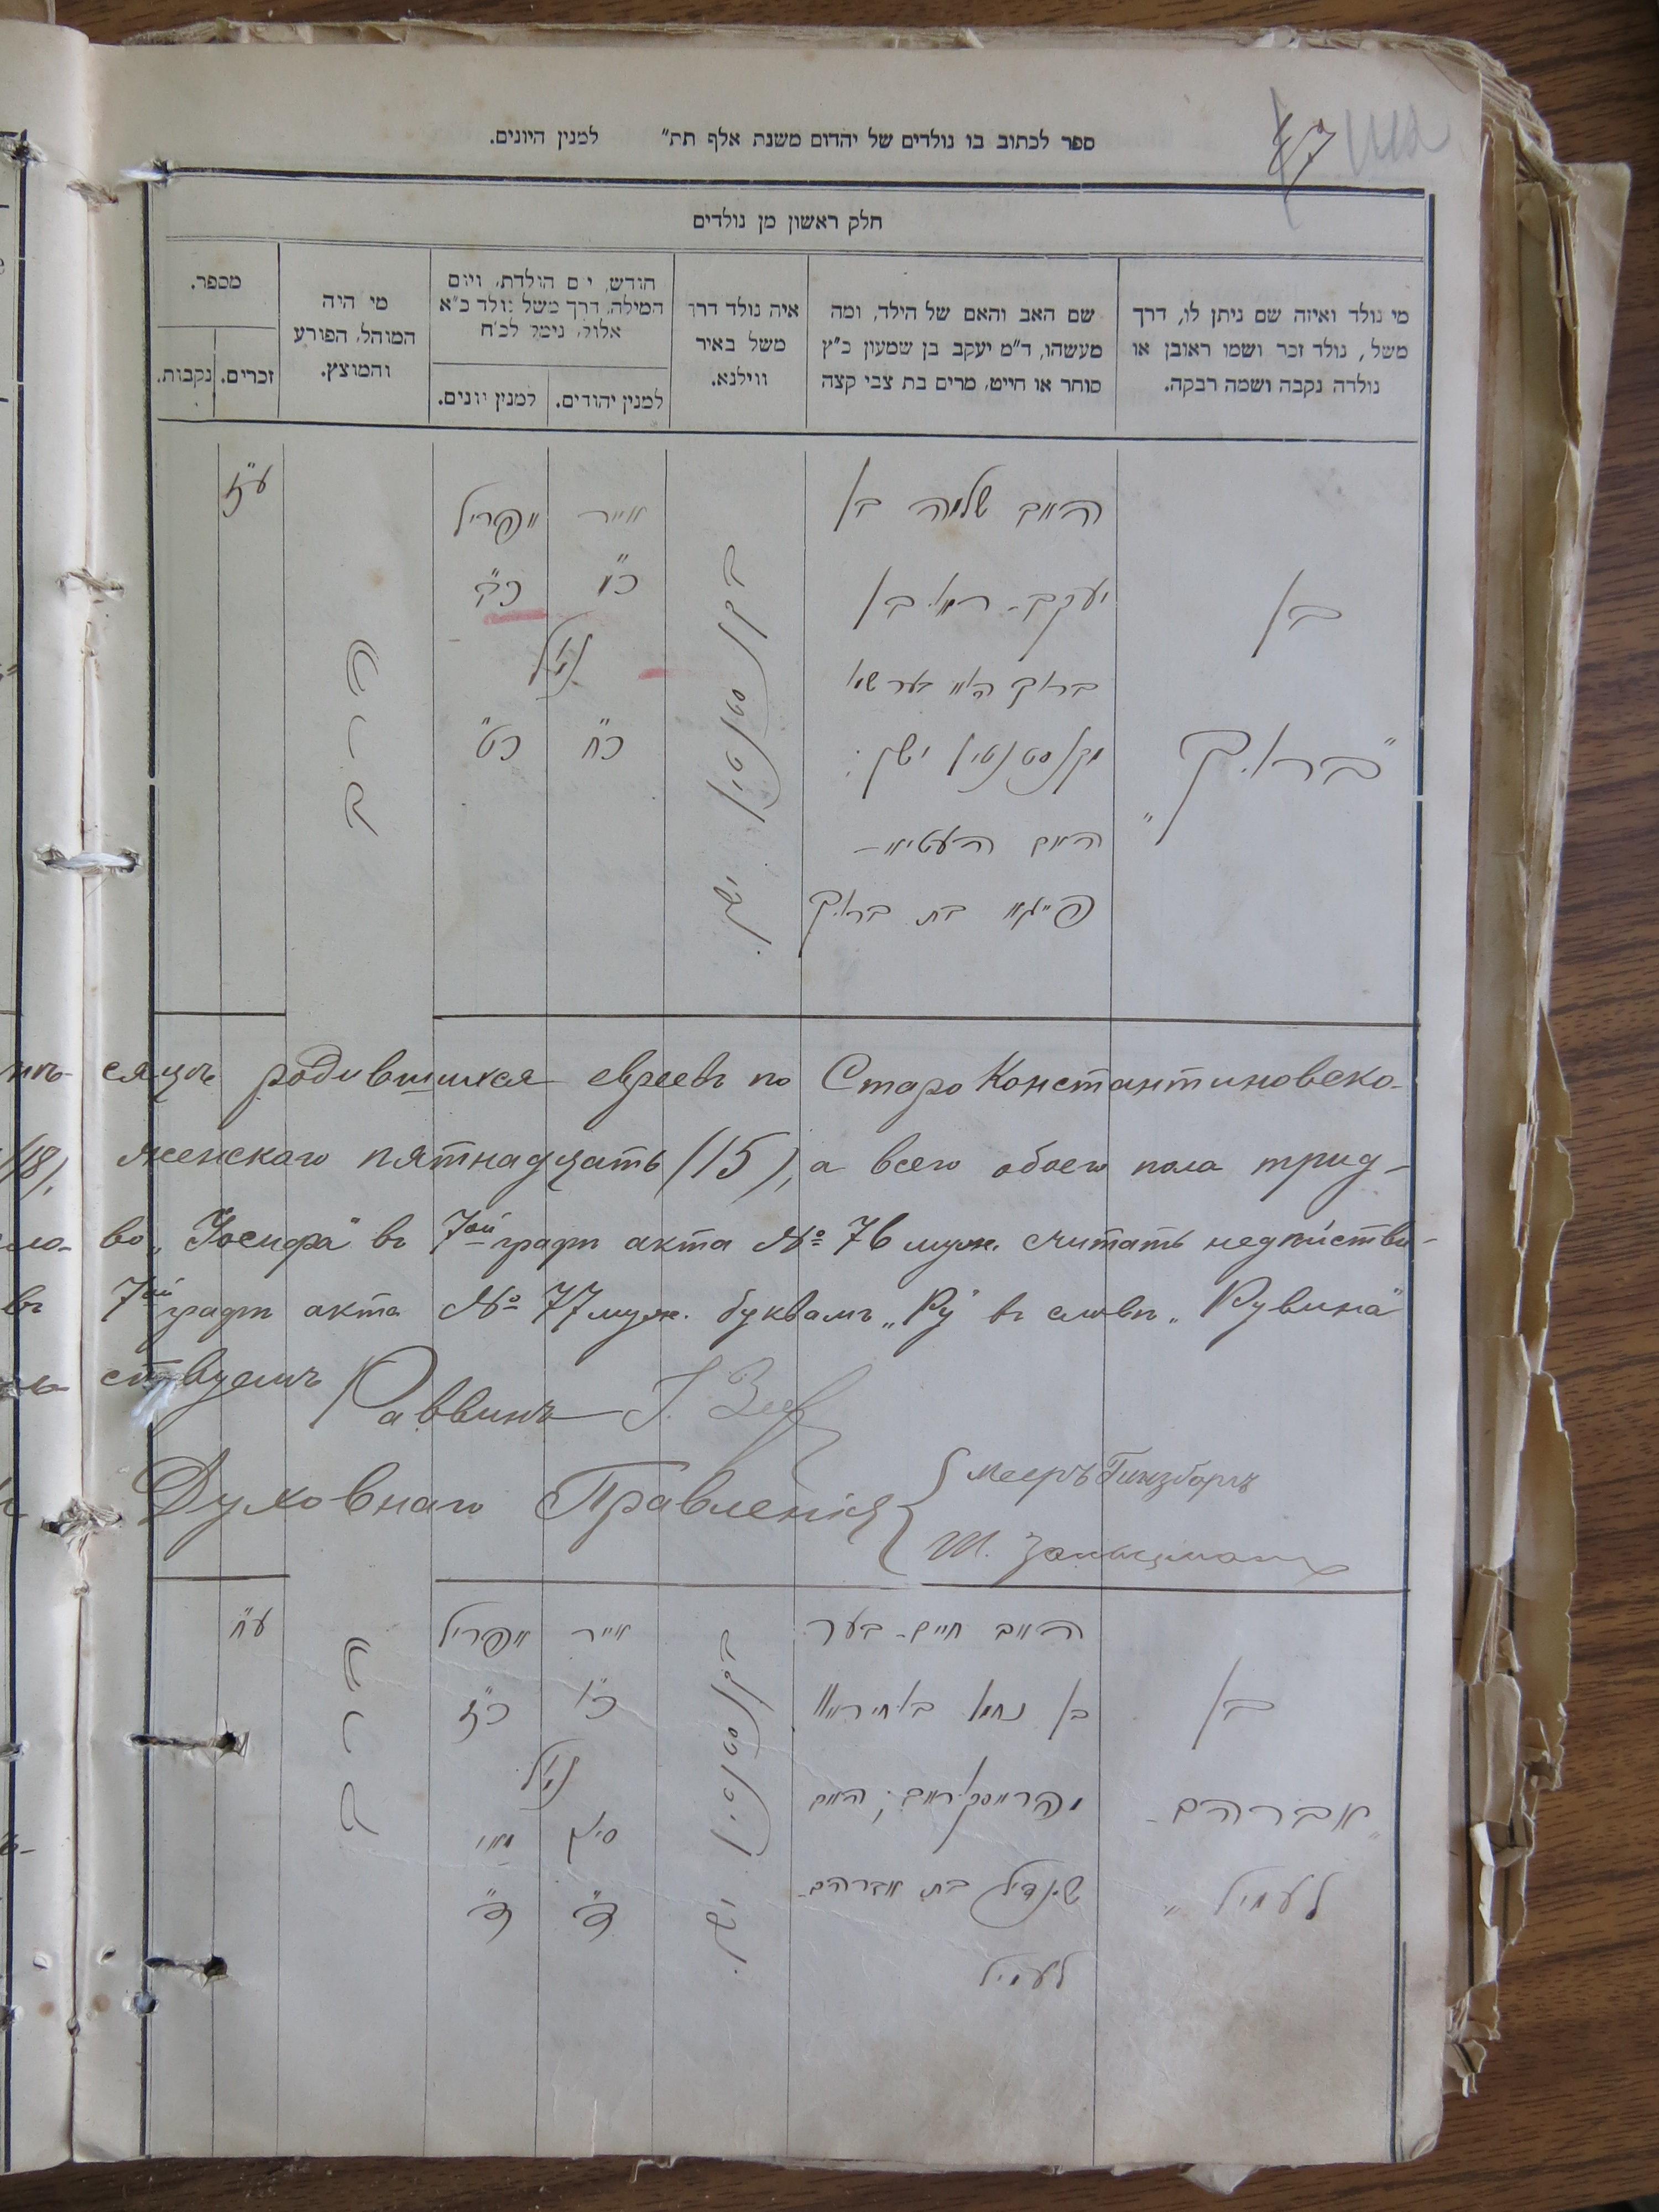 ספר לכתוב בו נולדים של יהדום משנת אלף תת״ למנין היונים.
47
חלק ראשון מן נולדים
מי נולד ואיזה שם ניתן לו, דרך
משל, נולד זכר ושמו ראובן או
נולדה נקבה ושמה רבקה.
שם האב והאם של הילד, ומה
מעשהו, ד״מ יעקב בן שמעון כ״ץ
סוחר או חייט, מרים בת צבי קצה
איה נולד דרך
משל באיר
ווילנא.
חודש, יום הולדת, ויום
המילה, דרך משל נולד כ״א
אלול, נימל לכ״ח
למנין יהודים.
למנין יונים.
מי היה
המוהל, הפורע
והמוצץ.
מספר.
זכרים.
נקבות.
בן
"ברוך"
האב שלמה בן
יעקב-
ברוך
קנסטנטין ישן;
האם
פייגא בת ברוך
בקנסטנטין ישן.
אייר
כ״ו
אפריל
נימל
כ״ח
כ״ט
ע״ז
сяцъ родившихся евреевъ по СтароКонстантиновско-
женскаго пятнадцать (15), а всего обоего пола трид-
во „Іосифа" въ 7ой графѣ акта № 76 муж. считать недѣйстви-
въ 7ой графѣ акта № 77 муж. буквамъ „Ру" въ словѣ „Рувина"
ствуемъ
Раввинъ
Духовнаго Правленія
Мееръ Гинзбургъ
בן
"אברהם-
לעמיל"
האב חיים-בער
בן נחמן
האם
שיינדיל בת אברהם-
לעמיל
בקנסטנטין ישן.
אייר
כ״ו
אפריל
כ״ז
נימל
סיון
מאי
ע״ח